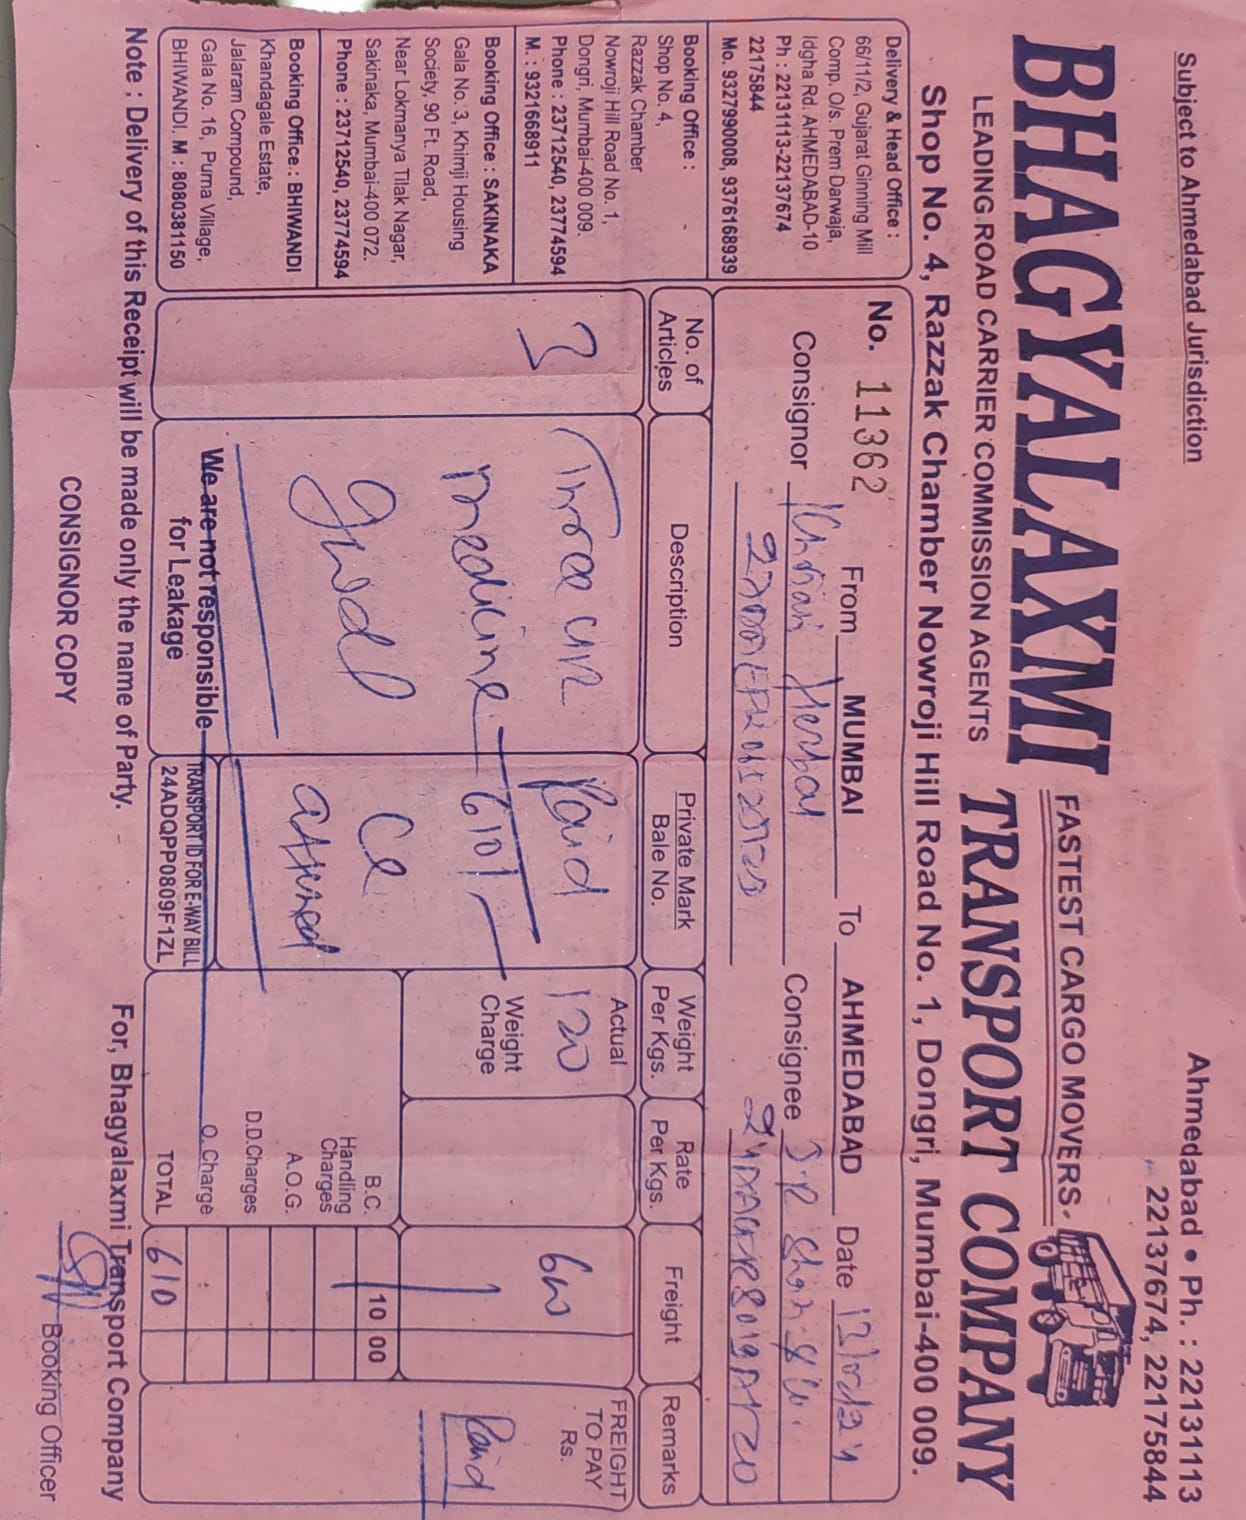 Subject to Ahmedabad Jurisdiction
Ahmedabad • Ph. : 22131113
22137674, 22175844
BHAGYALAXMI
FASTEST CARGO MOVERS
TRANSPORT COMPANY
LEADING ROAD CARRIER COMMISSION AGENTS
Shop No. 4, Razzak Chamber Nowroji Hill Road No. 1, Dongri, Mumbai-400 009.
Delivery & Head Office :
66/11/2, Gujarat Ginning Mill
Comp. O/s. Prem Darwaja,
Idgha Rd. AHMEDABAD-10
Ph : 22131113-22137674
22175844
Mo. 9327990008, 9376168939
Booking Office :
Shop No. 4,
Razzak Chamber
Nowroji Hill Road No. 1,
Dongri, Mumbai-400 009.
Phone : 23712540, 23774594
M. : 9321668911
Booking Office : SAKINAKA
Gala No. 3, Khimji Housing
Society, 90 Ft. Road,
Near Lokmanya Tilak Nagar,
Sakinaka, Mumbai-400 072.
Phone : 23712540, 23774594
Booking Office : BHIWANDI
Khandagale Estate,
Jalaram Compound,
Gala No. 16, Purna Village,
BHIWANDI. M : 8080381150
No. 11362 From MUMBAI To AHMEDABAD Date
Consignor Consignee
No. of Articles
Description
Private Mark
Bale No.
Weight Per Kgs.
Rate Per Kgs.
Freight
Remarks
3
Three
medicine
Paid
610
Actual
120
Weight Charge
600
FREIGHT TO PAY Rs.
Paid
B.C. 10 00
Handling Charges
A.O.G.
D.D.Charges
O.Charge
TOTAL 610
We are not responsible
for Leakage
TRANSPORT ID FOR E-WAY BILL
24ADQPP0809F1ZL
Note : Delivery of this Receipt will be made only the name of Party.
For, Bhagyalaxmi Transport Company
CONSIGNOR COPY
Booking Officer